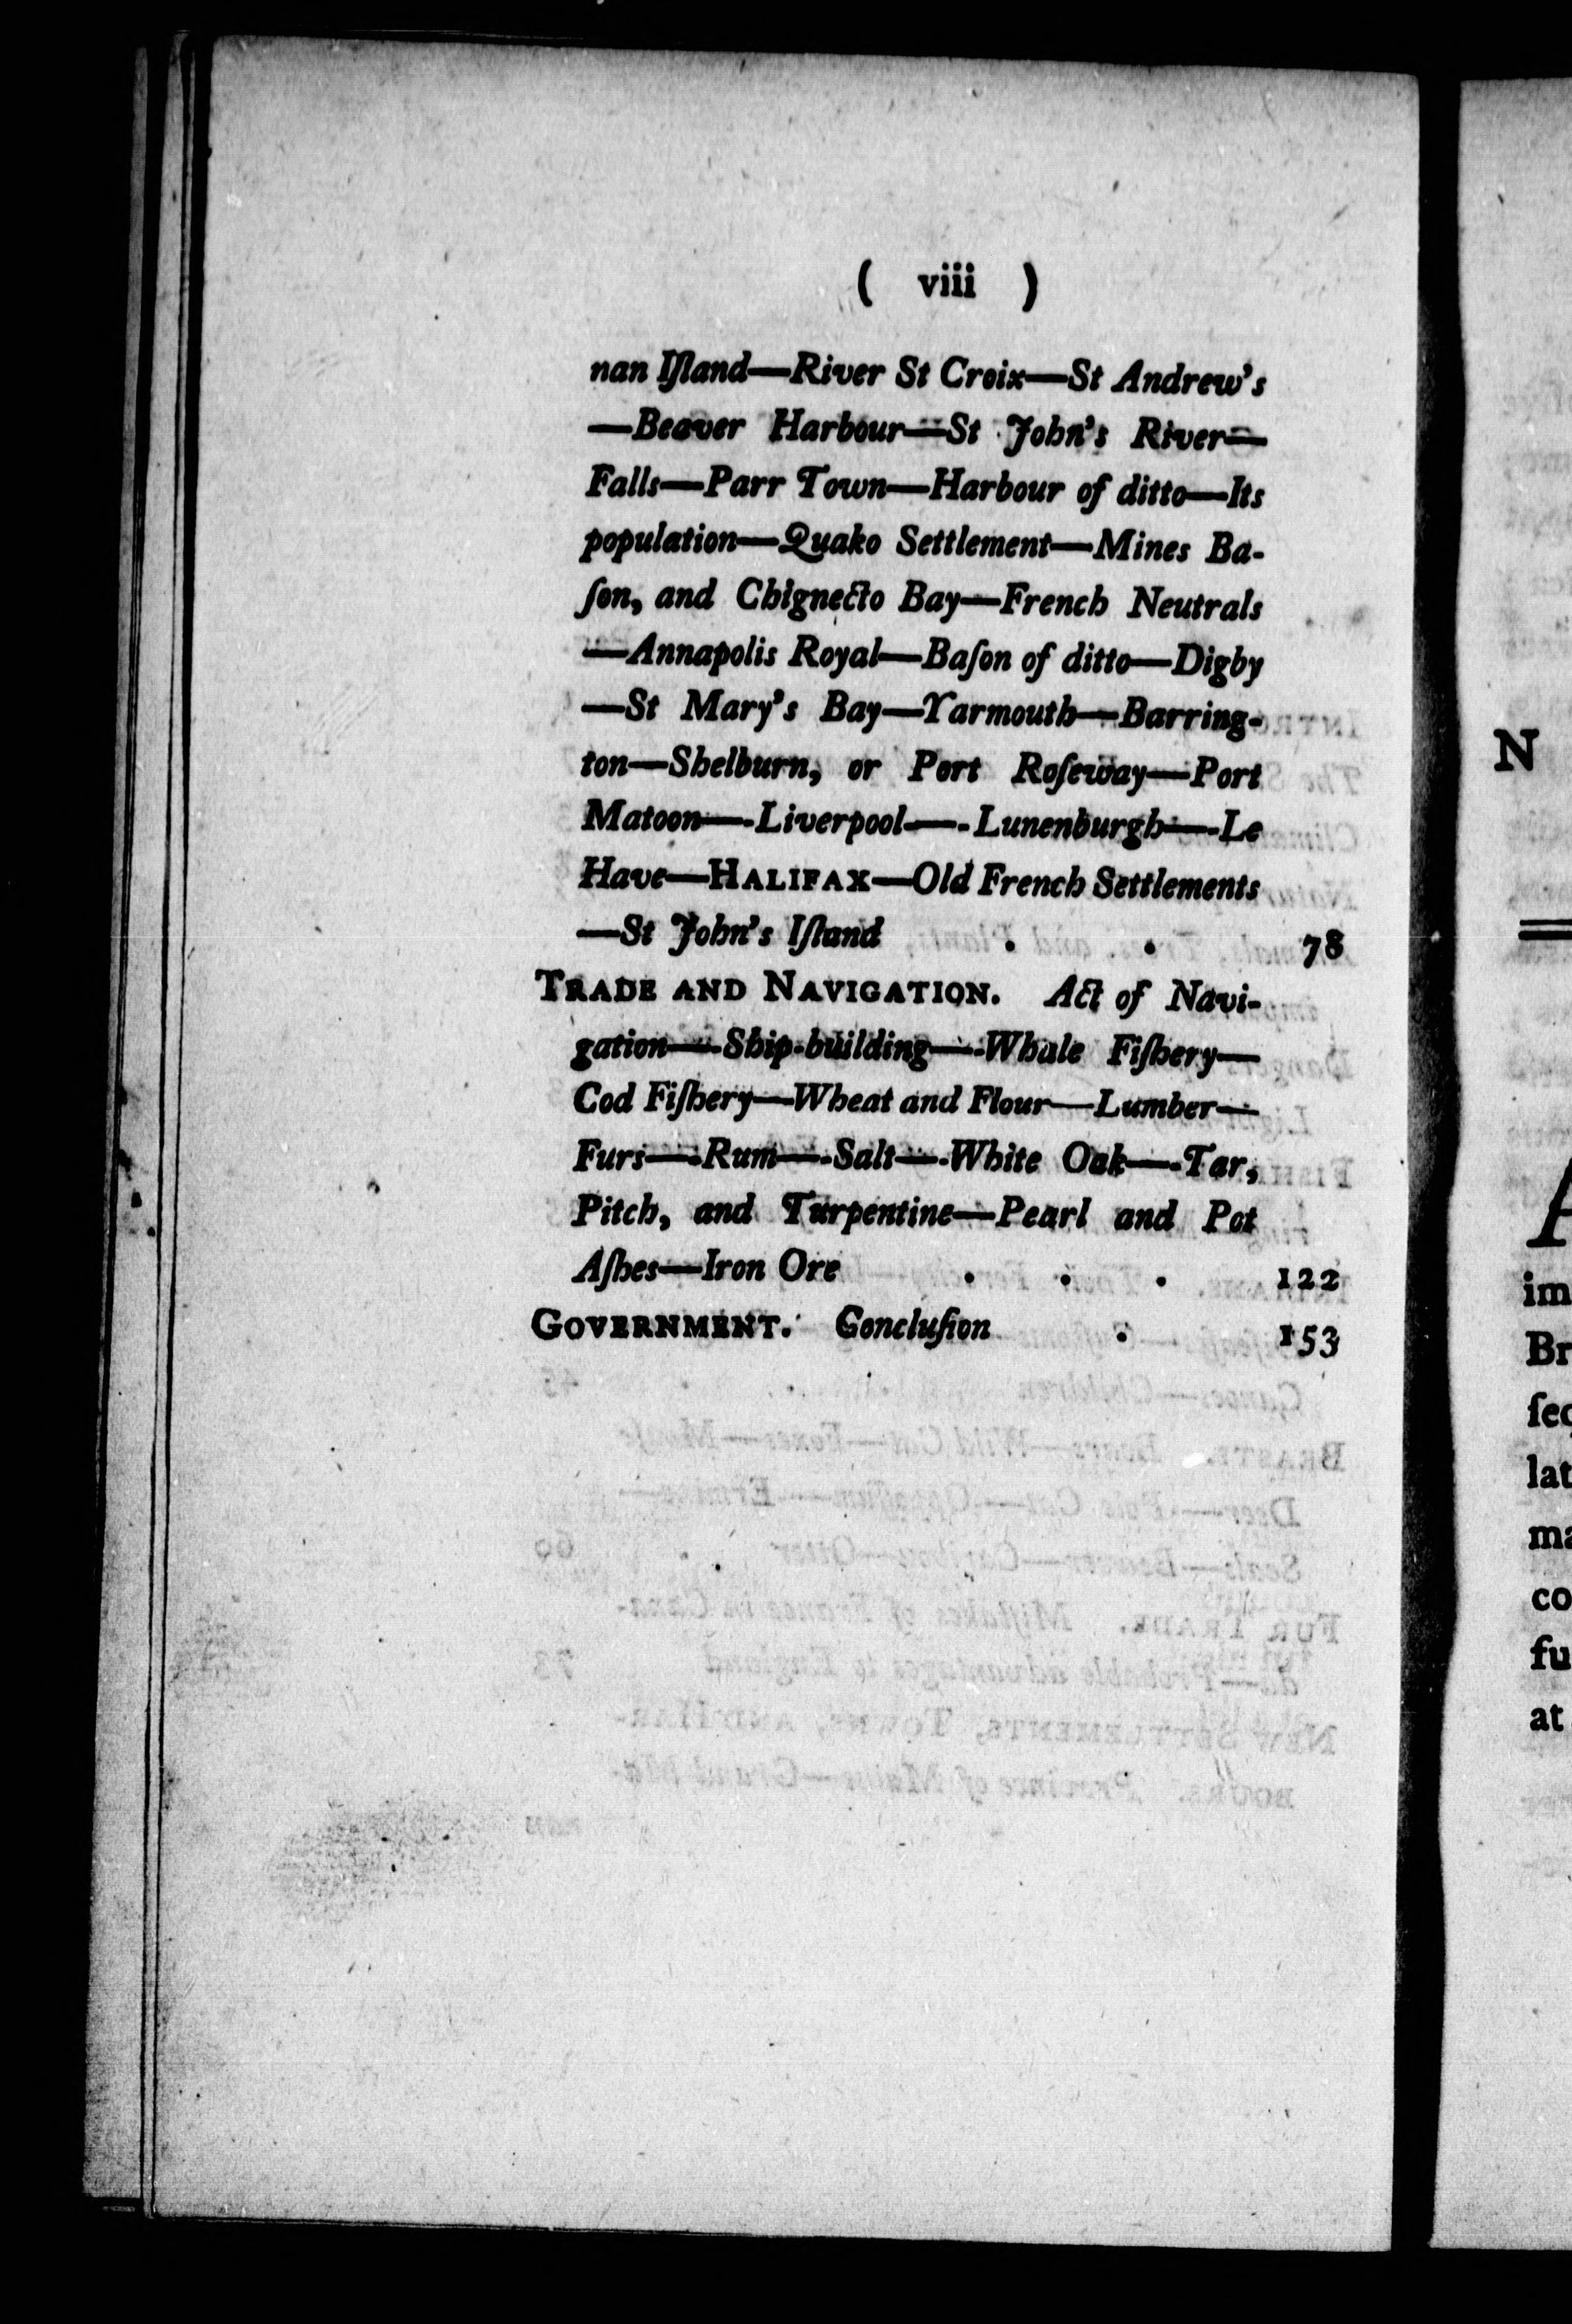 ( viii )
nan Iſland—River St Croix—St Andrew's
—Beaver Harbour—St John's River—
Falls—Parr Town—Harbour of ditto—Its
population—Quako Settlement—Mines Ba-
ſon, and Chignecto Bay—French Neutrals
—Annapolis Royal—Baſon of ditto—Digby
—St Mary's Bay—Yarmouth—Barring-
ton—Shelburn, or Port Roſeway—Port
Matoon—-Liverpool—-Lunenburgh—-Le
Have—HALIFAX—Old French Settlements
—St John's Iſland . . 78
TRADE AND NAVIGATION. Act of Navi-
gation—-Ship-building—-Whale Fiſhery—
Cod Fiſhery—Wheat and Flour—Lumber—
Furs—-Rum—-Salt—-White Oak—-Tar,
Pitch, and Turpentine—Pearl and Pot
Aſhes—Iron Ore . . . 122
GOVERNMENT. Concluſion . 153
N
A
im
Br
ſeq
lat
ma
co
fu
at